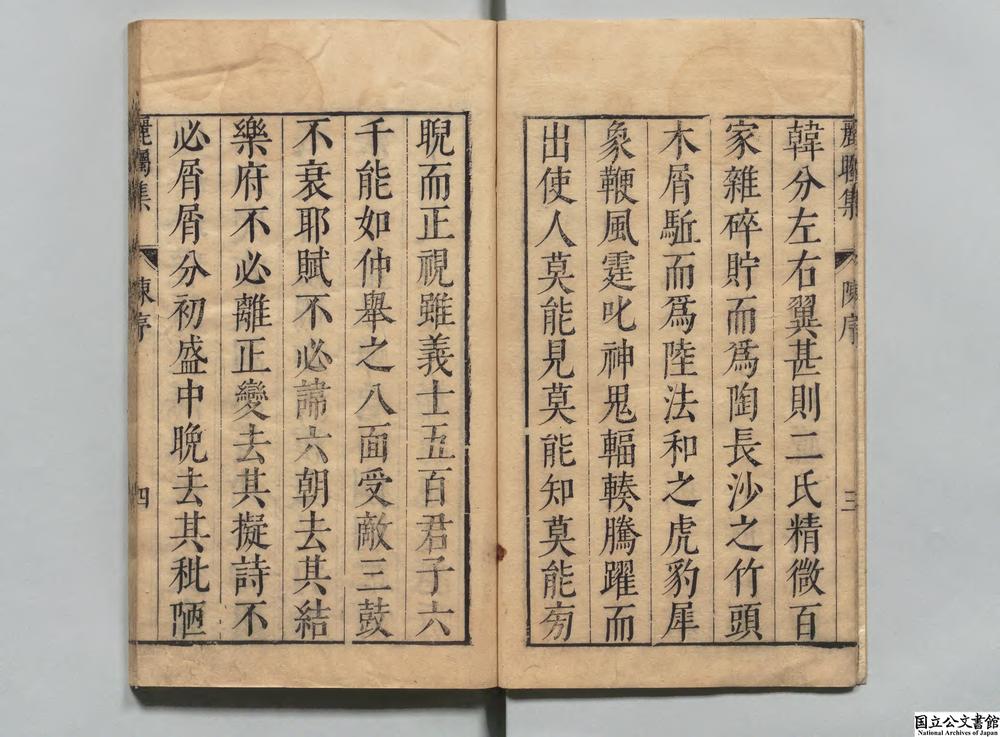 韓分左右翼甚則二氏精微百
家雜碎貯而爲陶長沙之竹頭
木屑駈而爲陸法和之虎豹犀
象鞭風霆叱神鬼輻輳騰躍而
出使人莫能見莫能知莫能旁
陳序
三
睨而正視雖義士五百君子六
千能如仲舉之八面受敵三鼓
不衰耶賦不必諦六朝去其結
樂府不必離正變去其擬詩不
必屑屑分初盛中晚去其秕陋
陳序
四
国立公文書館
National Archives of Japan